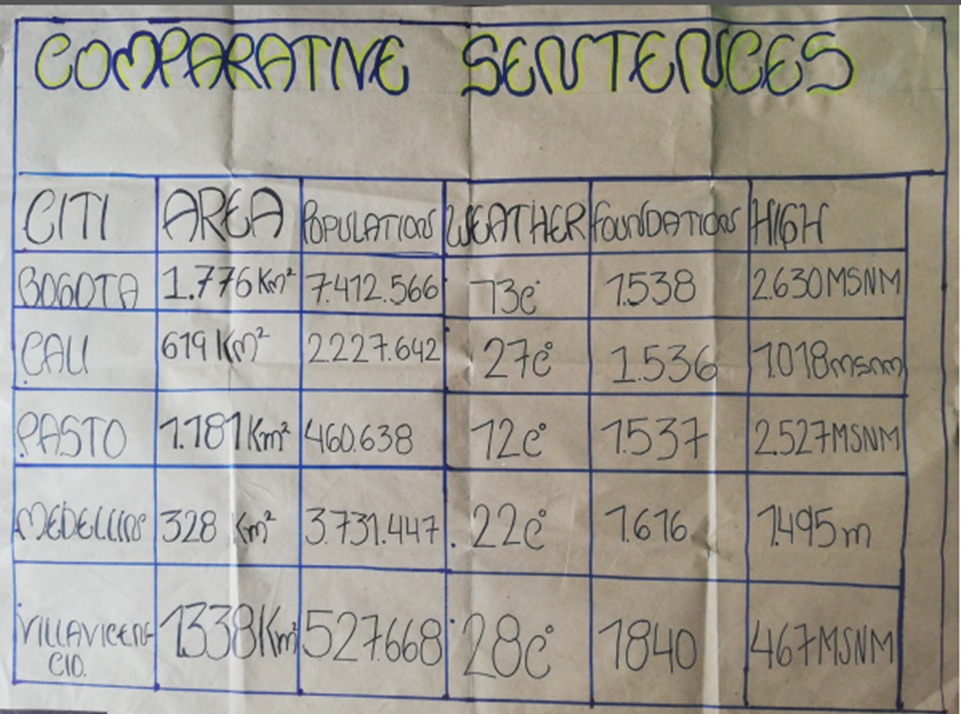 COMPARATIVE SENTENCES
CITI AREA POPULATIONS WEATHER FOUNDATIONS HIGH
BOGOTA 1.776 Km² 7.412.566 13c° 1.538 2.630 MSNM
CALI 619 Km² 2.227.642 27c° 1.536 1.018 msnm
PASTO 1.181 Km² 460.638 12c° 1537 2.527 MSNM
328 Km² 3.731.447 22c° 1.616 1.495 m
VILLAVICEN- 1338 Km² 527.668 28c° 1840 467 MSNM
CIO.